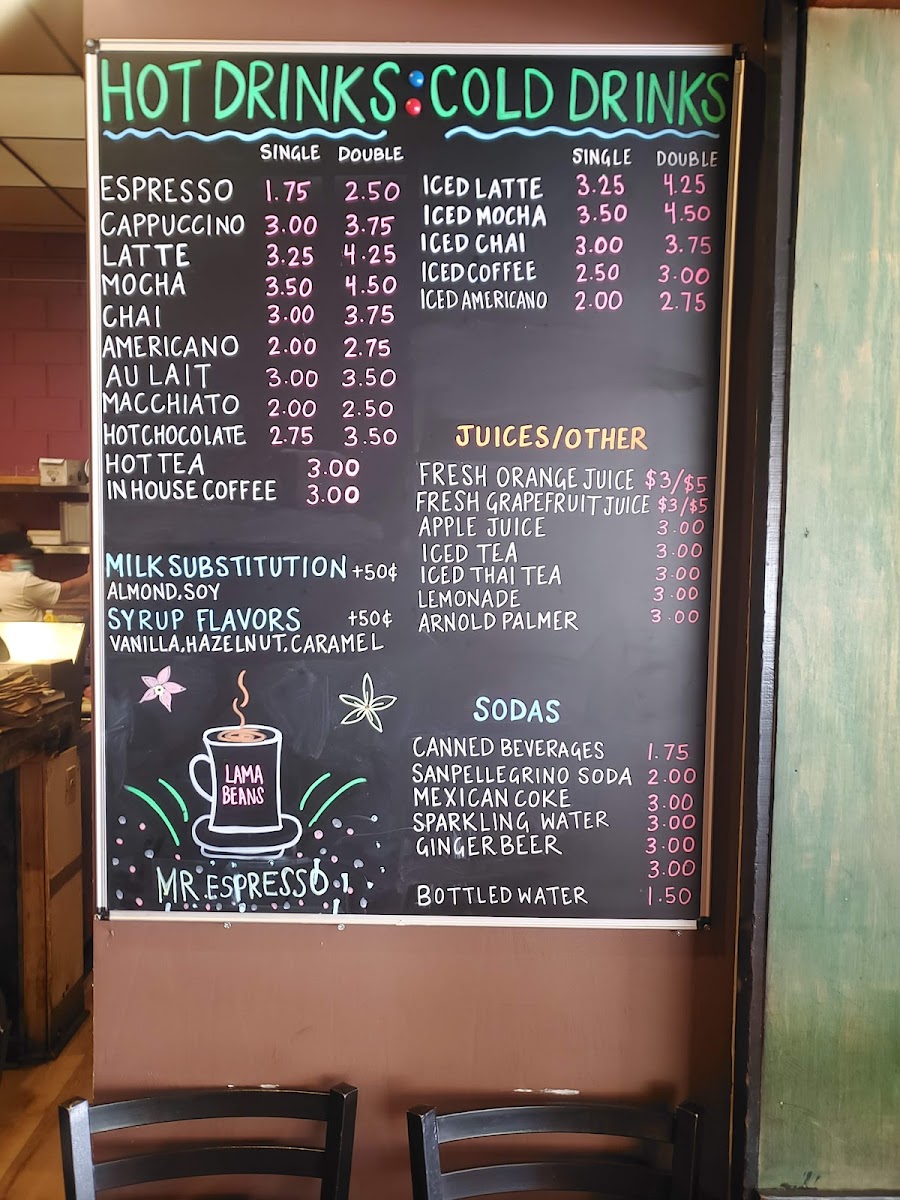 HOT DRINKS
SINGLE DOUBLE
ESPRESSO 1.75 2.50
CAPPUCCINO 3.00 3.75
LATTE 3.25 4.25
MOCHA 3.50 4.50
CHAI 3.00 3.75
AMERICANO 2.00 2.75
AU LAIT 3.00 3.50
MACCHIATO 2.00 2.50
HOT CHOCOLATE 2.75 3.50
HOT TEA 3.00
IN HOUSE COFFEE 3.00
MILK SUBSTITUTION +50¢
ALMOND, SOY
SYRUP FLAVORS +50¢
VANILLA, HAZELNUT, CARAMEL
LAMA
BEANS
MR. ESPRESSO
COLD DRINKS
SINGLE DOUBLE
ICED LATTE 3.25 4.25
ICED MOCHA 3.50 4.50
ICED CHAI 3.00 3.75
ICED COFFEE 2.50 3.00
ICED AMERICANO 2.00 2.75
JUICES/OTHER
FRESH ORANGE JUICE $3/$5
FRESH GRAPEFRUIT JUICE $3/$5
APPLE JUICE 3.00
ICED TEA 3.00
ICED THAI TEA 3.00
LEMONADE 3.00
ARNOLD PALMER 3.00
SODAS
CANNED BEVERAGES 1.75
SANPELLEGRINO SODA 2.00
MEXICAN COKE 3.00
SPARKLING WATER 3.00
GINGER BEER 3.00
3.00
BOTTLED WATER 1.50